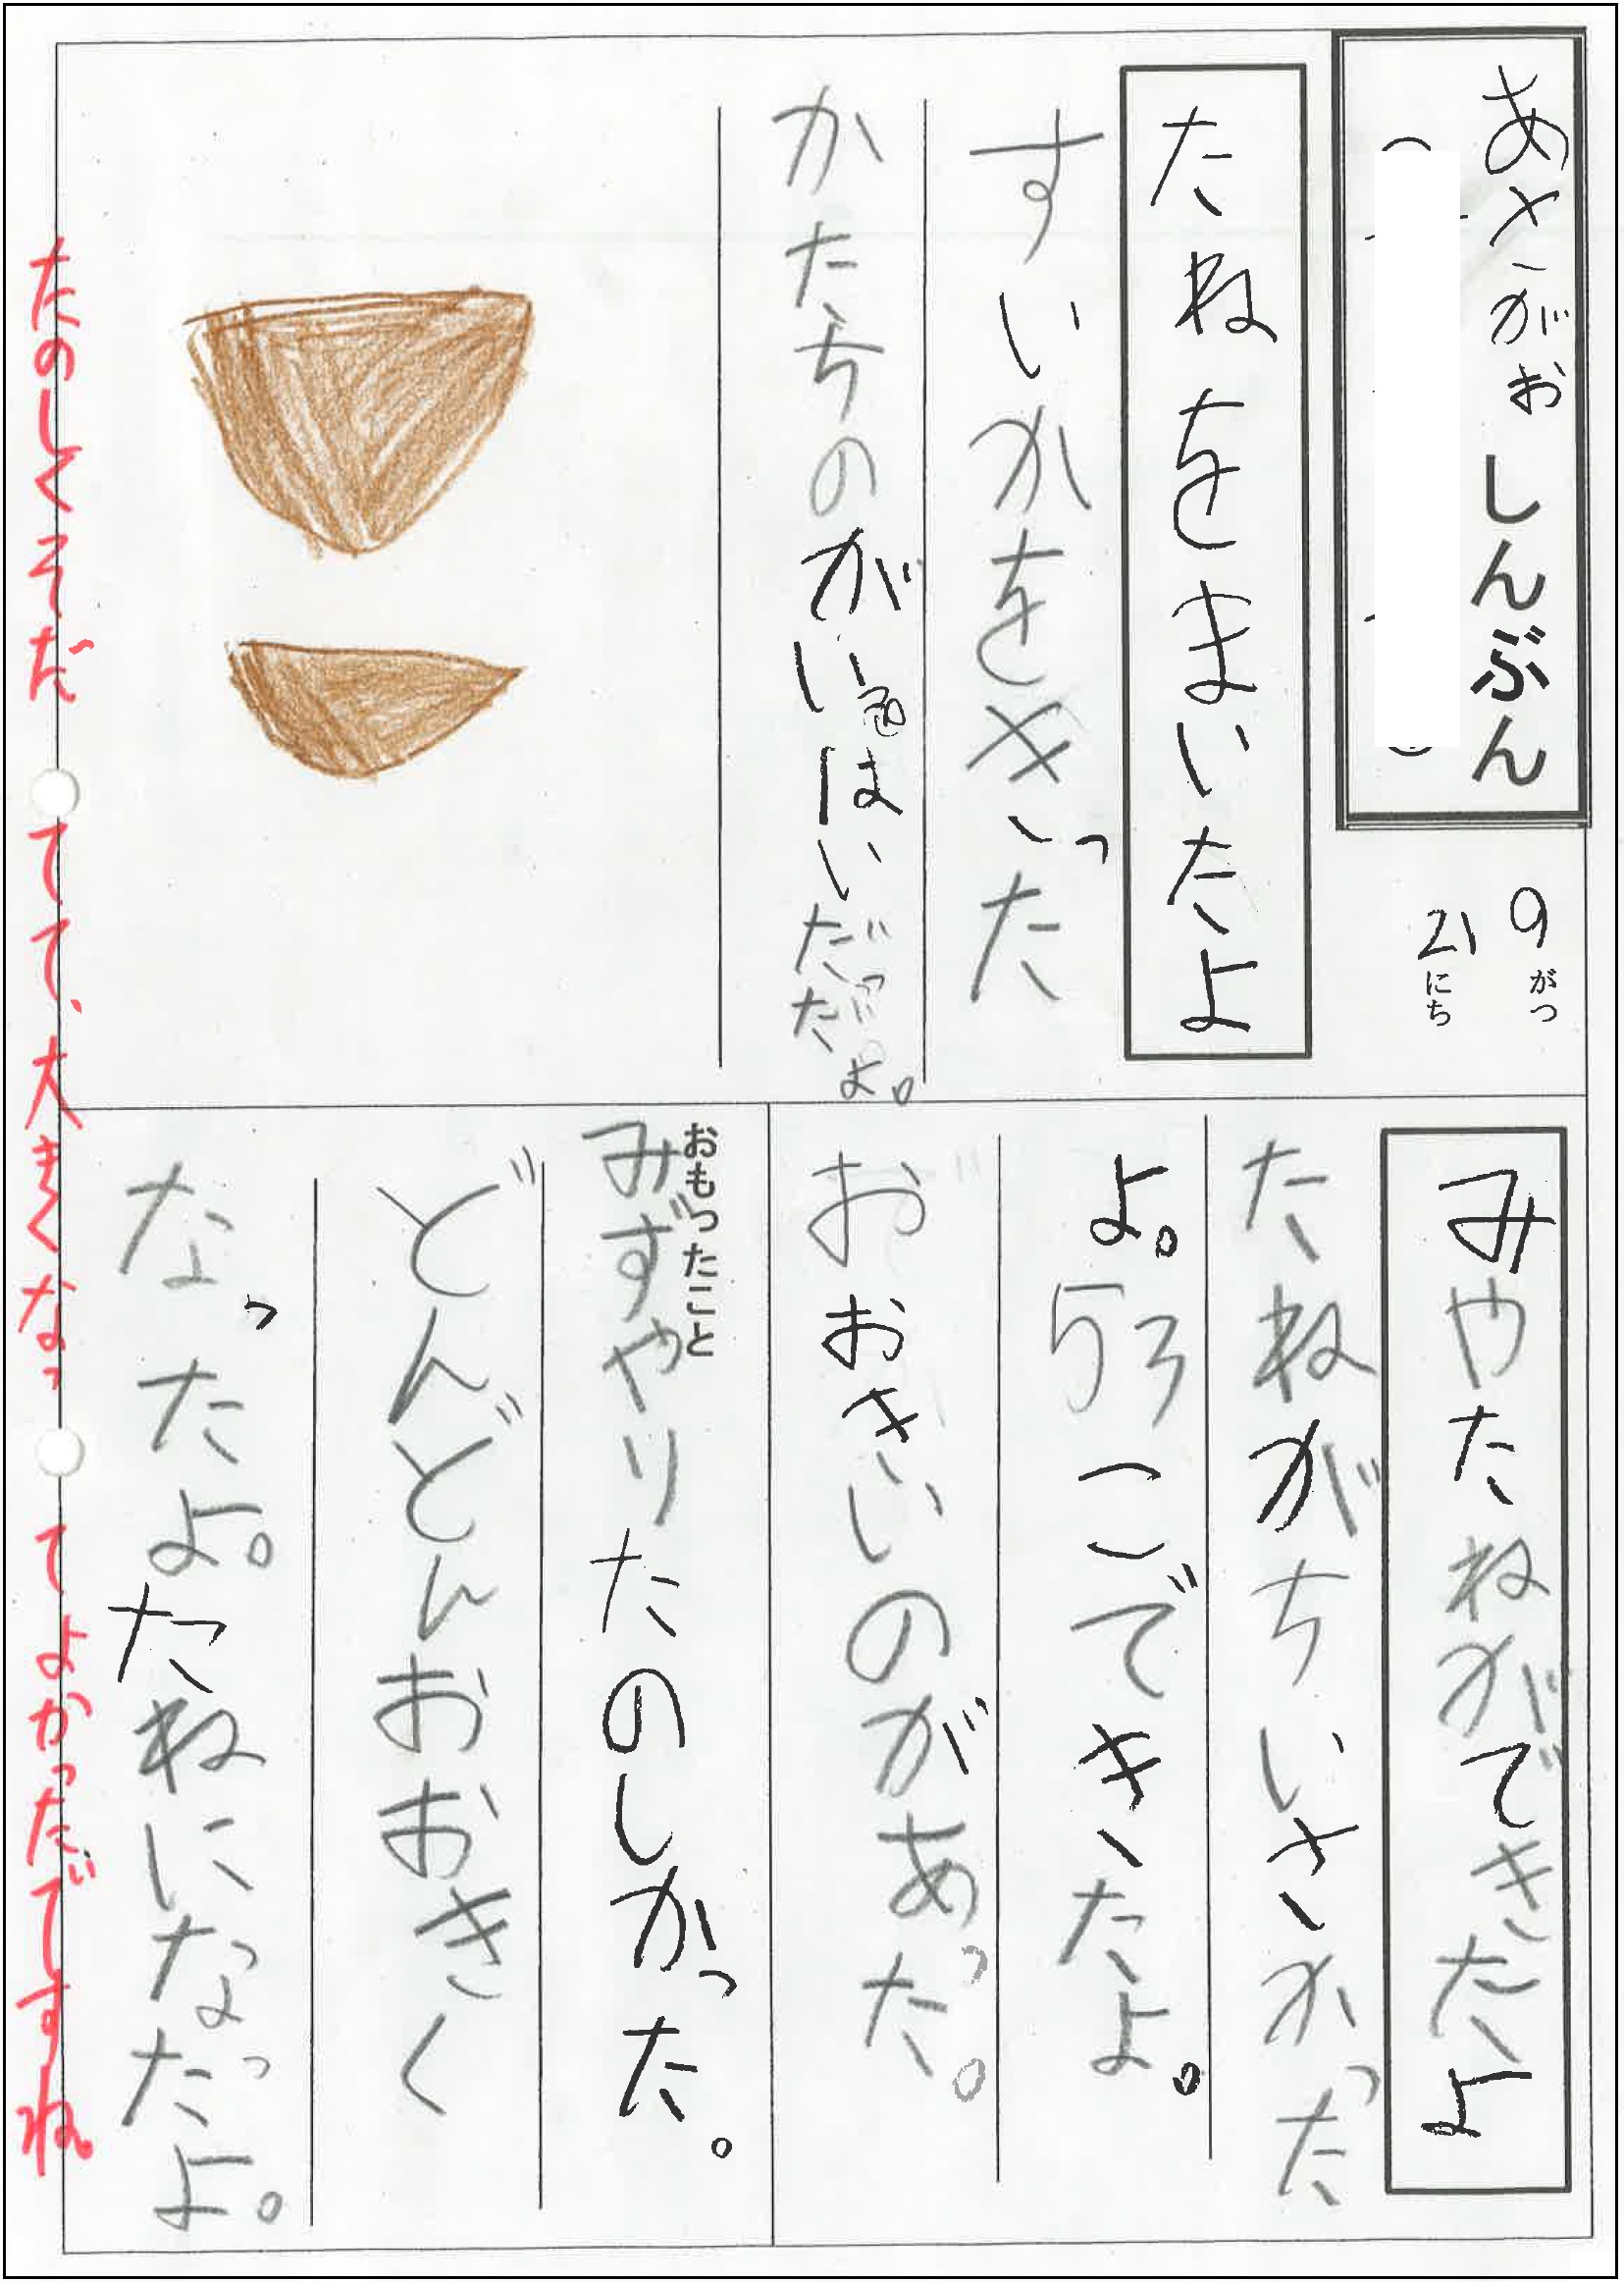 あさがお しんぶん
9がつ
21にち
たねをまいたよ
すいかをきった
かたちのがいっぱい
だっだよ。
みやたねができたよ
たねがちいさかった
よ。53こできたよ。
おおきいのがあった。
おもったこと
みずやりたのしかった。
どんどんおおきく
なったよ。たねになったよ。
たのしくそだてて、大きくなってよかっだですね。